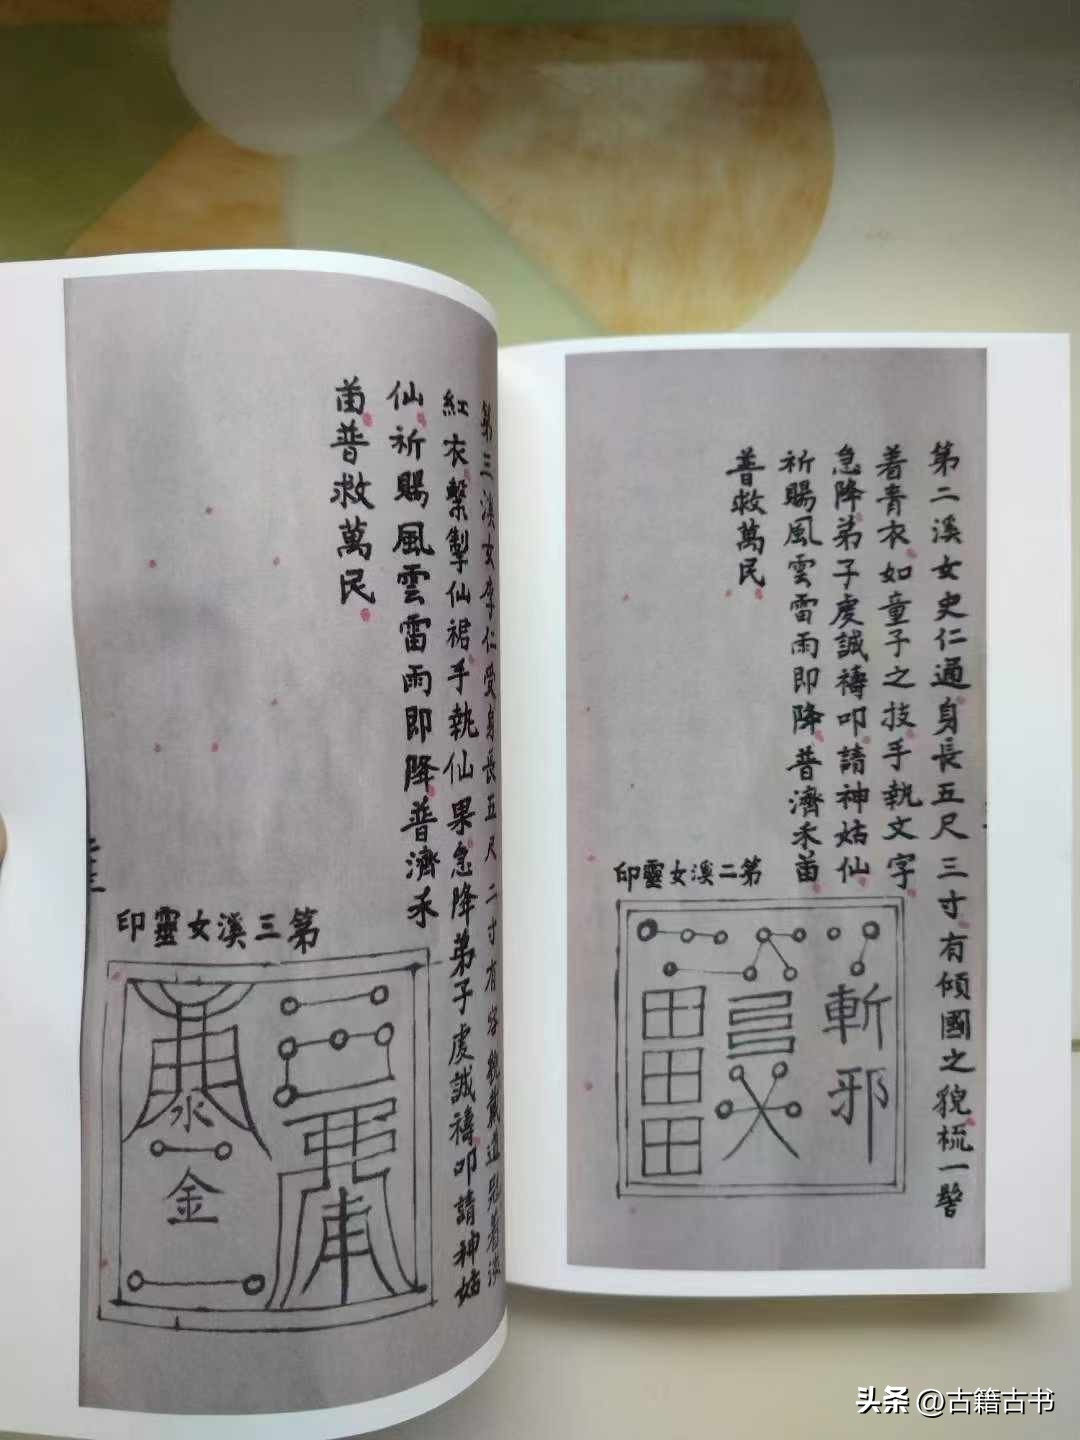 第二溪女史仁通身長五尺三寸有傾國之貌梳一髻
着青衣如童子之技手執文字
急降弟子虔誠禱叩請神姑仙
祈賜風雲雷雨即降普濟禾苗
普救萬民
第二溪女靈印
斬邪
田田田
第三溪女李仁受身長五尺二寸有容貌戴道冠着淡
紅衣繫掣仙裙手執仙果急降弟子虔誠禱叩請神姑
仙祈賜風雲雷雨即降普濟禾
苗普救萬民
第三溪女靈印
水
金
头条 @古籍古书